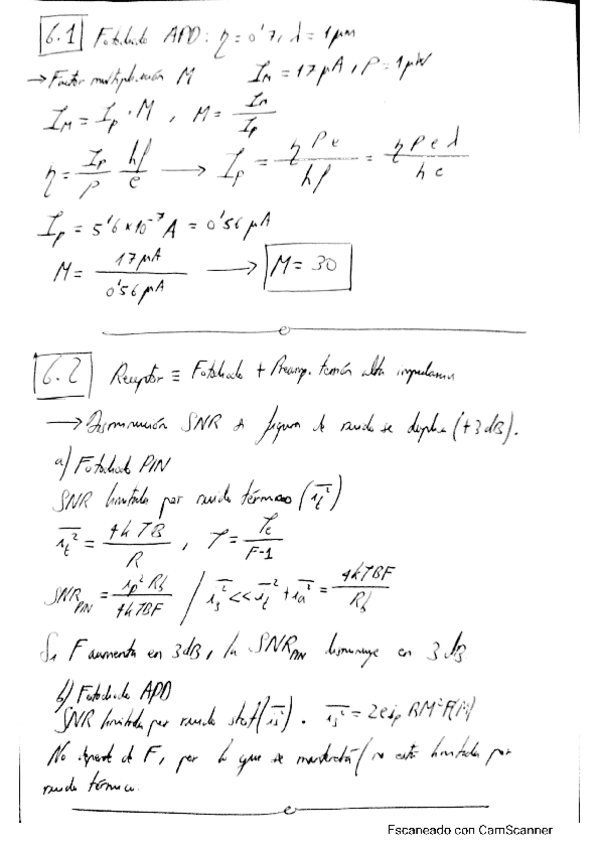 6.1 Fotodiodo APD: η = 0'7, λ = 1μm
→ Factor multiplicación M    I_M = 17μA, P = 1μW
I_M = I_p · M , M = I_M / I_p
η = I_p/P · hf/e → I_p = ηPe/hf = ηPeλ/hc
I_p = 5'6 × 10^-7 A = 0'56 μA
M = 17μA / 0'56μA → M = 30
6.2 Receptor ≡ Fotodiodo + Preamp. alta impedancia
→ Disminución SNR si figura de ruido se duplica (+3dB).
a) Fotodiodo PIN
SNR limitada por ruido térmico (i_t²)
i_t² = 4kTB / R , T = T_e / F-1
SNR_PIN = i_p² R_f / 4kTBF / i_s² << i_t² + i_a² = 4kTBF / R_f
Si F aumenta en 3dB, la SNR_PIN disminuye en 3dB
b) Fotodiodo APD
SNR limitada por ruido shot (i_s²). i_s² = 2ei_p BM²F(M)
No depende de F, por lo que se mantendrá / no está limitada por
ruido térmico.
Escaneado con CamScanner